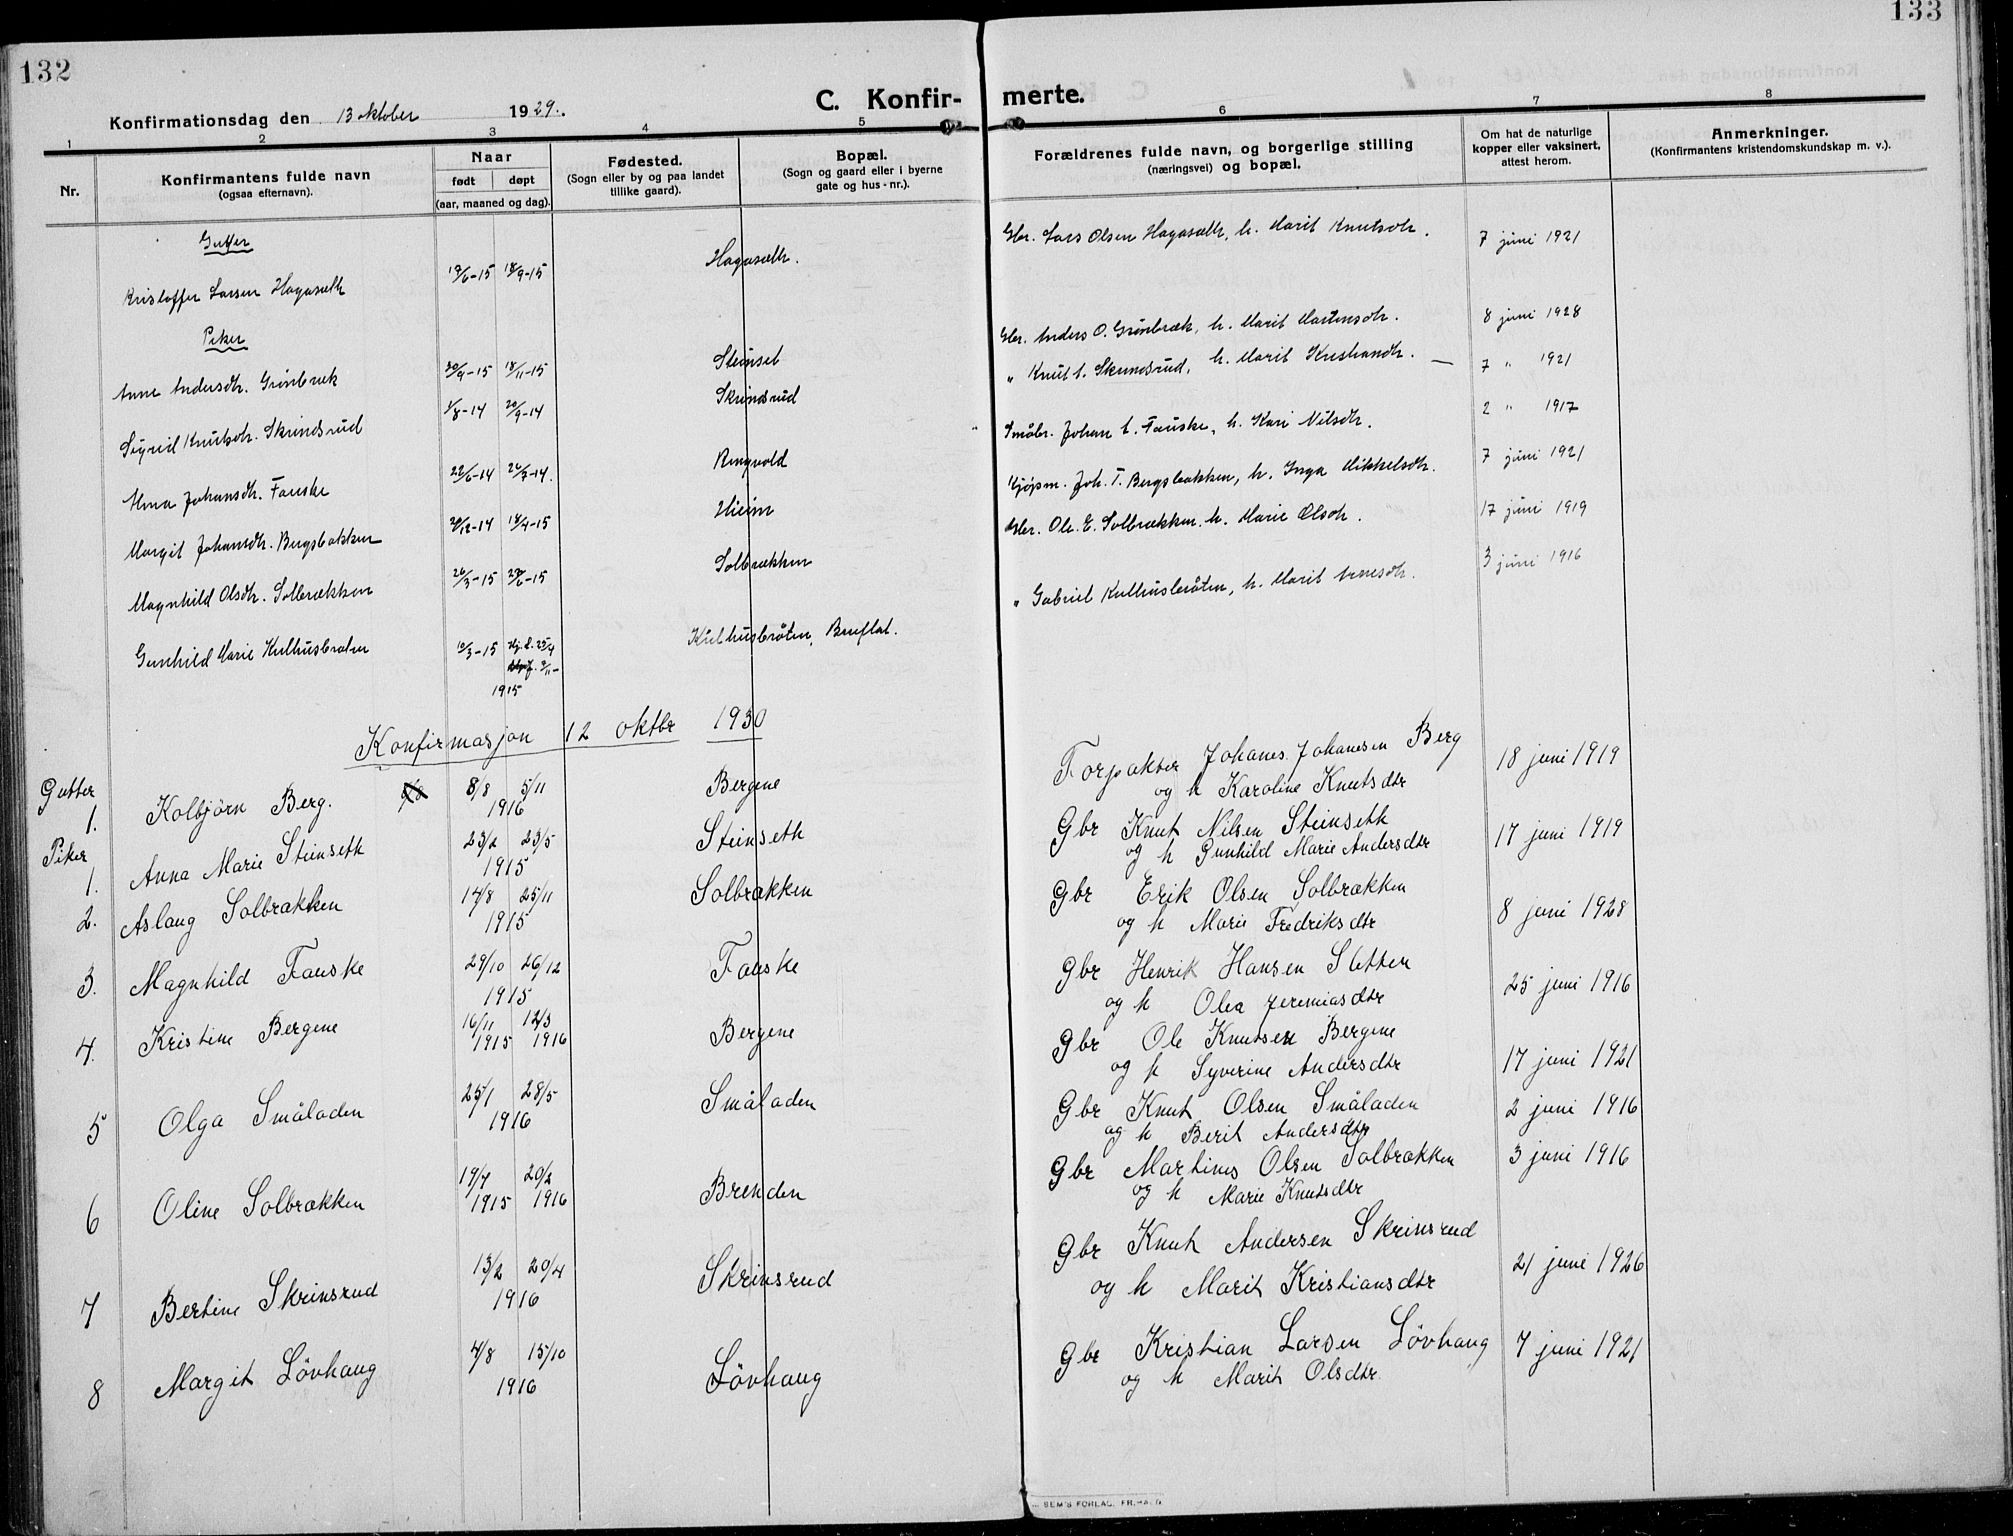 132
133
C. Konfir- merte.
Konfirmationsdag den 13 oktober 1929.
1 2 3 4 5 6 7 8
Nr.
Konfirmantens fulde navn
(ogsaa efternavn).
Naar
født døpt
(aar, maaned og dag).
Fødested.
(Sogn eller by og paa landet
tillike gaard).
Bopæl.
(Sogn og gaard eller i byerne
gate og hus-nr.).
Forældrenes fulde navn, og borgerlige stilling
(næringsvei) og bopæl.
Om hat de naturlige
kopper eller vaksinert,
attest herom.
Anmerkninger.
(Konfirmantens kristendomskundskap m. v.).
Gutter
Kristoffer Larsen Hagaseth 19/6-15 18/9-15 Hagaseth. Gbr. Lars Olsen Hagaseth, h. Marit Knutsdtr. 7 juni 1921
Piker
Anne Andersdtr. Grønbræk 30/9-15 18/11-15 Steinset Gbr. Anders O. Grønbræk, h. Marit Martensdtr. 8 juni 1928
Sigrid Knutsdtr. Skrindsrud 1/8-14 20/9-14 Skrindsrud " Knut A. Skrindsrud, h. Marit Kristiansdtr. — 7 " 1921
Alma Johansdtr. Fauske 22/6-14 26/7-14. Ringvold Småbr. Johan A. Fauske, h. Kari Nilsdtr. 2 " 1917
Margit Johansdtr. Bergsbakken 29/12-14 18/4-15 Heim Kjøpm. Joh. T. Bergsbakken, h. Inga Mikkelsdtr. 7 juni 1921
Magnhild Olsdtr. Solbrækken 26/3-15 29/6-15 Solbrækken Gbr. Ole E. Solbrækken, h. Marie Olsdtr. 17 juni 1919
Gunhild Marie Kulhusbråten 10/3-15 Hj.d. 25/4 9/11- 1915 Kulhusbråten, Bruflat. " Gabriel Kulhusbråten, h. Marit Arnesdtr. 3 juni 1916
Konfirmasjon 12 oktbr 1930
Gutter
1. Kolbjørn Berg. 8/8 5/11 1916 Bergene Forpakter Johanes Johanesen Berg 18 juni 1919
og h Karoline Knutsdtr
Piker
1. Anna Marie Steinseth 23/2 23/5 1915 Steinseth Gbr Knut Nilsen Steinseth 17 juni 1919
og h Gunhild Marie Andersdtr
2. Aslaug Solbrækken 14/8 25/11 1915 Solbrækken Gbr Erik Olsen Solbrækken 8 juni 1928
og h Marie Fredriksdtr
3. Magnhild Fauske 29/10 26/12 1915 Fauske Gbr Henrik Hansen Sletten 25 juni 1916
og h Olea Jeremiasdtr
4. Kristine Bergene 16/11 1915 12/3 1916 Bergene Gbr Ole Knutsen Bergene 17 juni 1921
og h Syverine Andersdtr
5 Olga Småladen 25/1 28/5 1916 Småladen Gbr Knut Olsen Småladen 2 juni 1916
og h Berit Andersdtr
6 Oline Solbrækken 19/7 1915 20/2 1916 Brenden Gbr Martinus Olsen Solbrækken 3 juni 1916
og h Marie Knutsdtr
7 Bertine Skrinsrud 13/2 20/4 1916 Skrinsrud Gbr Knut Andersen Skrinsrud 21 juni 1926
og h Marit Kristiansdtr
8 Margit Lövhaug 4/8 15/10 1916 Lövhaug Gbr Kristian Larsen Lövhaug 7 juni 1921
og h Marit Olsdtr
SEM'S FORLAG, FR.HALD